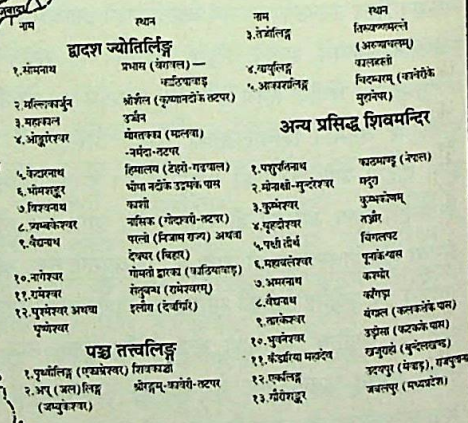 नाम स्थान
द्वादश ज्योतिर्लिङ्ग
१.सोमनाथ प्रभास (वेरावल)—
काठियावाड़
२.मल्लिकार्जुन श्रीशैल (कृष्णानदीके तटपर)
३.महाकाल उज्जैन
४.ओङ्कारेश्वर मोरतक्का (मालवा)
-नर्मदा-तटपर
५.केदारनाथ हिमालय (टेहरी-गढ़वाल)
६.भीमशङ्कर भीमा नदीके उद्गमके पास
७.विश्वनाथ काशी
८.त्र्यम्बकेश्वर नासिक (गोदावरी-तटपर)
९.वैद्यनाथ परली (निजाम राज्य) अथवा
देवघर (बिहार)
१०.नागेश्वर गोमती द्वारका (काठियावाड़)
११.रामेश्वर सेतुबन्ध (रामेश्वरम्)
१२.घुश्मेश्वर अथवा इलौरा (देवगिरि)
घृष्णेश्वर
पञ्च तत्त्वलिङ्ग
१.पृथ्वीलिङ्ग (एकाम्रेश्वर) शिवकाञ्ची
२.अप् (जल)लिङ्ग श्रीरङ्गम्-कावेरी-तटपर
(जम्बुकेश्वर)
नाम स्थान
३.तेजोलिङ्ग तिरुवण्णमल्लै
(अरुणाचलम्)
४.वायुलिङ्ग कालहस्ती
५.आकाशलिङ्ग चिदम्बरम् (कावेरीके
मुहानेपर)
अन्य प्रसिद्ध शिवमन्दिर
१.पशुपतिनाथ काठमाण्डू (नेपाल)
२.मीनाक्षी-सुन्दरेश्वर मदुरा
३.कुम्भेश्वर कुम्भकोणम्
४.बृहदीश्वर तञ्जौर
५.पक्षी तीर्थ चिंगलपट
६.महाबलेश्वर पूनाके पास
७.अमरनाथ कश्मीर
८.वैद्यनाथ काँगड़ा
९.तारकेश्वर बंगाल (कलकत्तेके पास)
१०.भुवनेश्वर उड़ीसा (कटकके पास)
११.कंडारिया महादेव खजुराहो (बुन्देलखण्ड)
१२.एकलिङ्ग उदयपुर (मेवाड़),
१३.गौरीशङ्कर जबलपुर (मध्यप्रदेश)